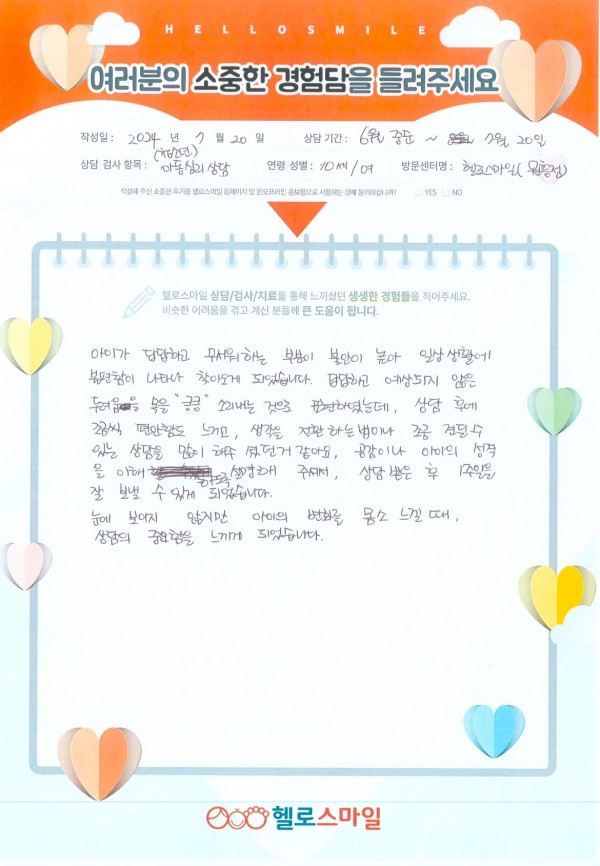 HELLOSMILE
여러분의 소중한 경험담을 들려주세요
작성일 : 2024 년 7 월 20 일 상담 기간 : 6월 중순 ~ 7월 20일
(청소년)
상담 검사 항목 : 아동심리상담 연령 성별 : 10세/여 방문센터명 : 헬로스마일( 점)
작성해 주신 소중한 후기를 헬로스마일 홈페이지 및 온오프라인 홍보용으로 사용하는 것에 동의하십니까? YES NO
헬로스마일 상담/검사/치료를 통해 느끼셨던 생생한 경험들을 적어주세요.
비슷한 어려움을 겪고 계신 분들께 큰 도움이 됩니다.
아이가 답답하고 무서워하는 부분이 불안이 높아 일상생활에
불편함이 나타나 찾아오게 되었습니다. 답답하고 예상되지 않은
두려움을 목을 "킁킁" 소리내는 것으로 표현하였는데, 상담 후에
조금씩 편안함도 느끼고, 생각을 전환하는 법이나 조금 견딜수
있는 상담을 많이 해주셨던거 같아요, 공감이나 아이의 성격
을 이해하도록 설명해 주셔서, 상담 받은 후 1주일을
잘 보낼 수 있게 되었습니다.
눈에 보이지 않지만 아이의 변화를 몸소 느낄 때,
상담의 중요함을 느끼게 되었습니다.
헬로스마일